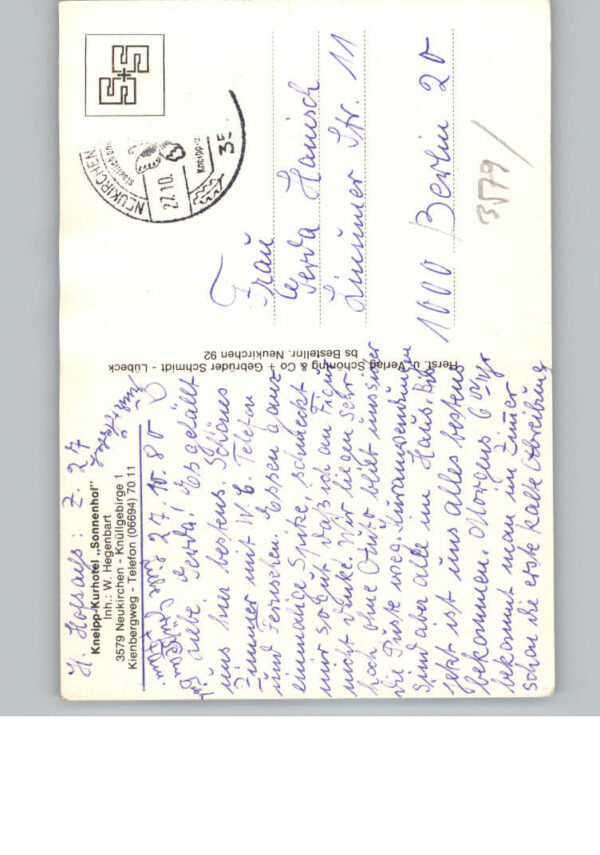 H. Hofsaß: Z. 27
Kneipp-Kurhotel „Sonnenhof"
Inh.: W. Hegenbart
3579 Neukirchen - Knüllgebirge 1
Kienbergweg - Telefon (06694) 70 11
27.10.80
Liebe Gerda! Es gefällt
uns hier bestens. Schönes
Zimmer mit W.C. Telefon
und Fernsehen. Essen ganz
einmalige Spitze, schmeckt
mir so gut daß ich an
nicht denke. Wir liegen sehr
hoch ohne Auto bleibt uns immer
die Puste weg. Kuranwendungen
sind aber alle im Haus. Bis
jetzt ist uns alles bestens
bekommen. Morgens 6 Uhr
bekommt man im Zimmer
schon die erste kalte Abreibung
Herst. u. Verlag Schöning & Co + Gebrüder Schmidt - Lübeck
bs Bestellnr. Neukirchen 92
S+S
NEUKIRCHEN
27.10.
Kneipp
35
Frau
Gerda Hanisch
Str. 11
1000 Berlin 20
3579/